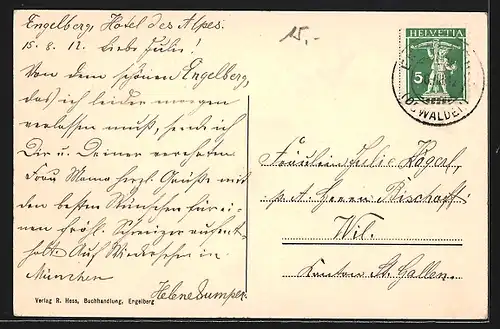 Engelberg, Hotel des Alpes.
15. 8. 12. Liebe Julie!
Von dem schönen Engelberg,
das ich leider morgen
verlassen muß, sende ich
Dir u. Deiner verehrten
Frau Mama herzl. Grüße mit
den besten Wünschen für ei-
nen fröhl. Schweizer aufent-
halt. Auf Wiedersehen in
München
Helene
Verlag R. Hess, Buchhandlung, Engelberg
15,-
HELVETIA
5
(OBWALDEN)
Fräulein Julie
p. Adr. Herrn Bischoff
Wil.
Kanton St. Gallen.